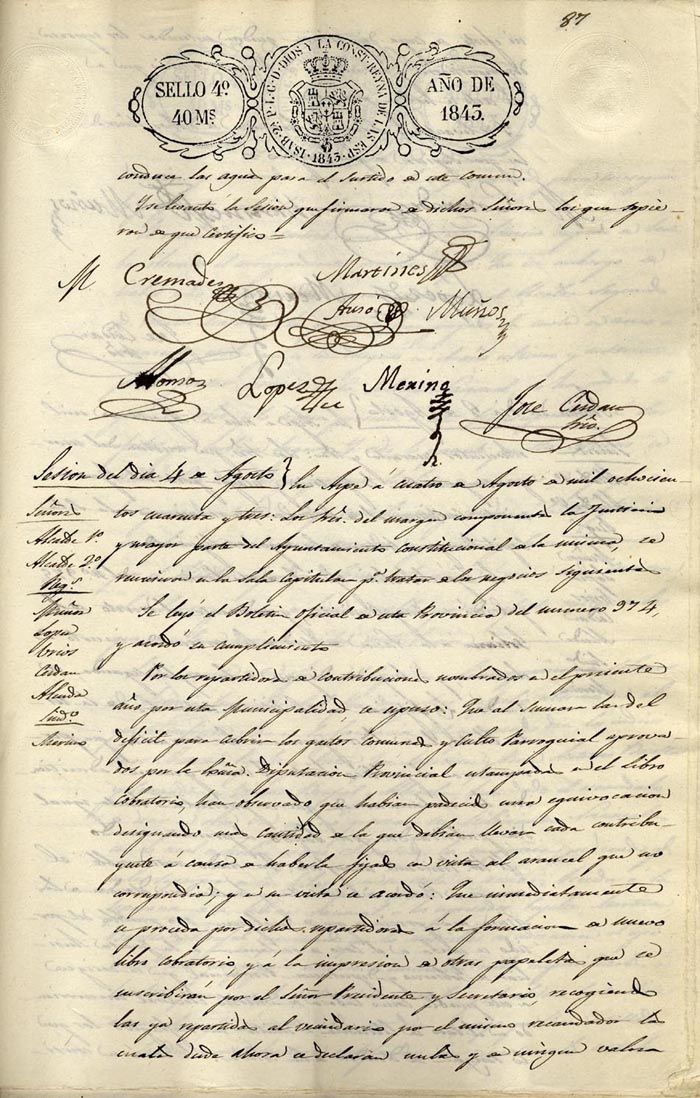 87
SELLO 4º
40 Ms.
ISAB. 2ª P. L. G. D. DIOS Y LA CONST. REYNA DE LAS ESP.
1843.
AÑO DE
1843.
conduce las aguas para el surtido de este comun.
Y se levantó la Sesion que firmaron de dichos Señores los que supie-
ron de que Certifico=
M Cremades
Martinez
Ausó
Muños
Alonso
Lopez
Merino
Jose Cerdan
Srio.
Sesion del dia 4 de Agosto
En Aspe á cuatro de Agosto de mil ochocien-
tos cuarenta y tres: Los Sres. del margen componentes la Justicia
y mayor parte del Ayuntamiento constitucional de la misma, se
reunieron en la Sala Capitular pª tratar de los negocios siguientes
Señores
Alcalde 1º
Alcalde 2º
Reg.s
Muñoz
Lopez
Cerdan
Alcaldes
Sindº
Merino
Se leyó el Boletin oficial de esta Provincia del numero 974,
y acordó su cumplimiento
Por los repartidores de contribuciones nombrados en el presente
año por esta Municipalidad, se espuso: Que al sumar las del
deficit para cubrir los gastos comunes y Culto Parroquial aprova-
dos por la Diputacion Provincial estampadas en el Libro
Cobratorio, han observado que habian padecido una equivocacion
designando mas cantidad de la que debian llevar cada contribu-
yente a causa de haberla fijado con vista al arancel que no
correspondia; y en su vista se acordó: Que inmediatamente
se proceda por dichos repartidores á la formacion de nuevo
libro cobratorio, y á la impresion de otras papeletas que se
suscribirán por el Señor Presidente y Secretario, recogiendo
las ya repartidas al vecindario por el mismo recaudador las
cuales desde ahora se declaran nulas y de ningun valor